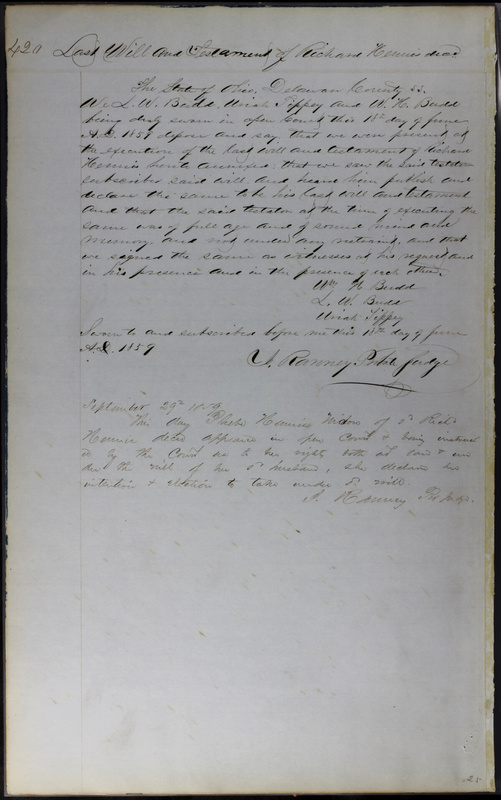 420 Last Will and Testament of Richard Hennis decd
The State of Ohio, Delaware County SS.
We L. W. Budd, Uriah Tippey and W. H. Budd
being duly sworn in open Court this 18th day of June
A.D. 1859 depose and say, that we were present at
the execution of the last will and testament of Richard
Hennis hereto annexed; that we saw the said testator
subscribe said will, and heard him publish and
declare the same to be his last will and testament
and that the said testator at the time of executing the
same was of full age and of sound mind and
memory and not under any restraint, and that
we signed the same as witnesses at his request and
in his presence and in the presence of each other.
Wm H Budd
L. W. Budd
Uriah Tippey
Sworn to and subscribed before me this 18th day of June
A.D. 1859
Ranney Probate Judge
September 29th 1859
This day Phebe Hennis Widow of Rich
Hennis decd appeared in open Court & being instruct
ed by the Court as to her rights both at law & un
der the will of her husband, she declared her
intention & election to take under will.
Ranney Judge.